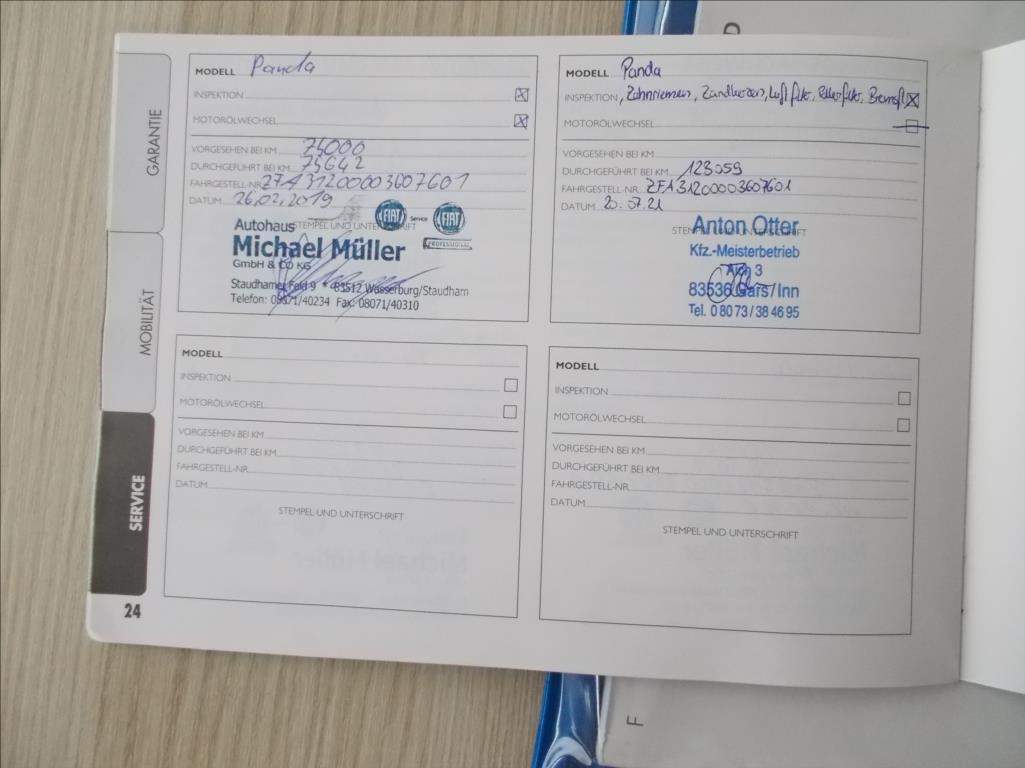 GARANTIE
MOBILITÄT
SERVICE
24
MODELL Panda
INSPEKTION
MOTORÖLWECHSEL
VORGESEHEN BEI KM 75000
DURCHGEFÜHRT BEI KM 75642
FAHRGESTELL-NR. ZFA31200003607601
DATUM 26.02.2019
STEMPEL UND UNTERSCHRIFT
Autohaus
Michael Müller
GmbH & CO KG
FIAT Service FIAT
PROFESSIONAL
Staudhamer Feld 9 * 83512 Wasserburg/Staudham
Telefon: 08071/40234 Fax: 08071/40310
MODELL Panda
INSPEKTION, Zahnriemen, Zündkerzen, Luftfilter, Pollenfilter, Bremsfl
MOTORÖLWECHSEL
VORGESEHEN BEI KM
DURCHGEFÜHRT BEI KM 123059
FAHRGESTELL-NR. ZFA31200003607601
DATUM 20.07.21
Anton Otter
Kfz.-Meisterbetrieb
Aich 3
83536 Gars/Inn
Tel. 0 80 73 / 38 46 95
MODELL
INSPEKTION
MOTORÖLWECHSEL
VORGESEHEN BEI KM
DURCHGEFÜHRT BEI KM
FAHRGESTELL-NR.
DATUM
STEMPEL UND UNTERSCHRIFT
MODELL
INSPEKTION
MOTORÖLWECHSEL
VORGESEHEN BEI KM
DURCHGEFÜHRT BEI KM
FAHRGESTELL-NR.
DATUM
STEMPEL UND UNTERSCHRIFT
F